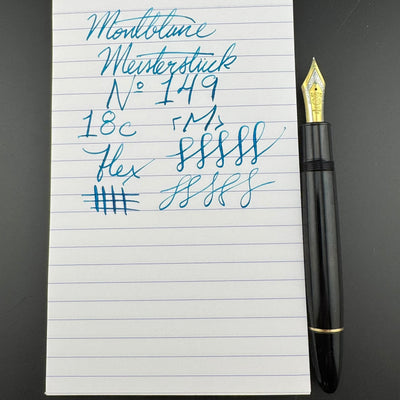 Montblanc
Meisterstuck
Nº 149
18c <M>
flex